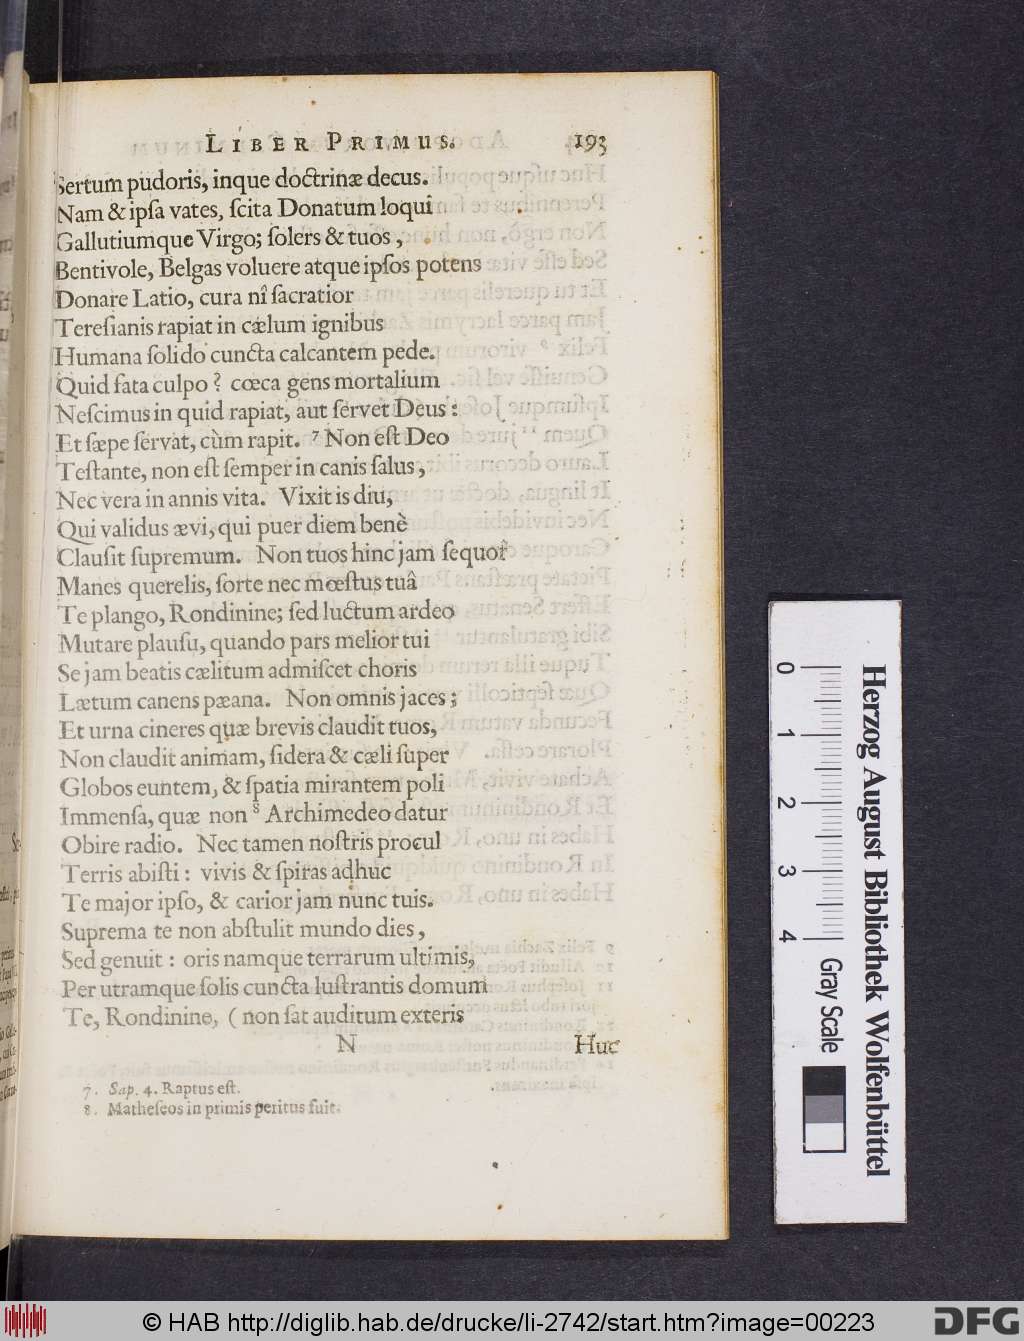 LIBER PRIMUS. 193
Sertum pudoris, inque doctrinæ decus.
Nam & ipſa vates, ſcita Donatum loqui
Gallutiumque Virgo; ſolers & tuos,
Bentivole, Belgas voluere atque ipſos potens
Donare Latio, cura nî ſacratior
Tereſianis rapiat in cælum ignibus
Humana ſolido cuncta calcantem pede.
Quid fata culpo? cœca gens mortalium
Neſcimus in quid rapiat, aut ſervet Deus:
Et ſæpe ſervat, cùm rapit. ⁷ Non eſt Deo
Teſtante, non eſt ſemper in canis ſalus,
Nec vera in annis vita. Vixit is diu,
Qui validus ævi, qui puer diem benè
Clauſit ſupremum. Non tuos hinc jam ſequor
Manes querelis, forte nec mœſtus tuâ
Te plango, Rondinine; ſed luctum ardeo
Mutare plauſu, quando pars melior tui
Se jam beatis cælitum admiſcet choris
Lætum canens pæana. Non omnis jaces;
Et urna cineres quæ brevis claudit tuos,
Non claudit animam, ſidera & cæli ſuper
Globos euntem, & ſpatia mirantem poli
Immenſa, quæ non ⁸ Archimedeo datur
Obire radio. Nec tamen noſtris procul
Terris abiſti: vivis & ſpiras adhuc
Te major ipſo, & carior jam nunc tuis.
Suprema te non abſtulit mundo dies,
Sed genuit: oris namque terrarum ultimis,
Per utramque ſolis cuncta luſtrantis domum
Te, Rondinine, (non ſat auditum exteris
N Huc
7. Sap. 4. Raptus eſt.
8. Matheſeos in primis peritus fuit.
0 1 2 3 4
Gray Scale
Herzog August Bibliothek Wolfenbüttel
© HAB http://diglib.hab.de/drucke/li-2742/start.htm?image=00223
DFG